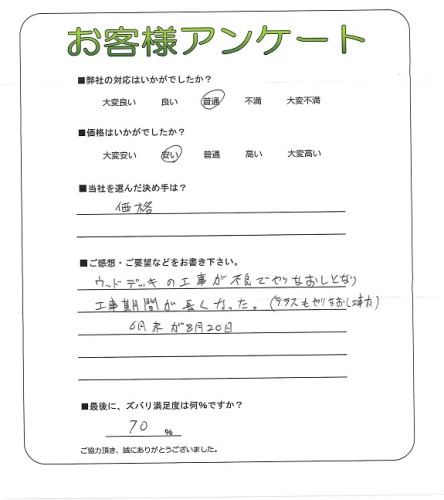 お客様アンケート
■弊社の対応はいかがでしたか？
大変良い 良い 普通 不満 大変不満
■価格はいかがでしたか？
大変安い 安い 普通 高い 大変高い
■当社を選んだ決め手は？
価格
■ご感想・ご要望などをお書き下さい。
ウッドデッキの工事が不良でやりなおしとなり
工事期間が長くなった。(テラスもやりなおし工事有)
6月末が8月20日
■最後に、ズバリ満足度は何％ですか？
70 ％
ご協力頂き、誠にありがとうございました。